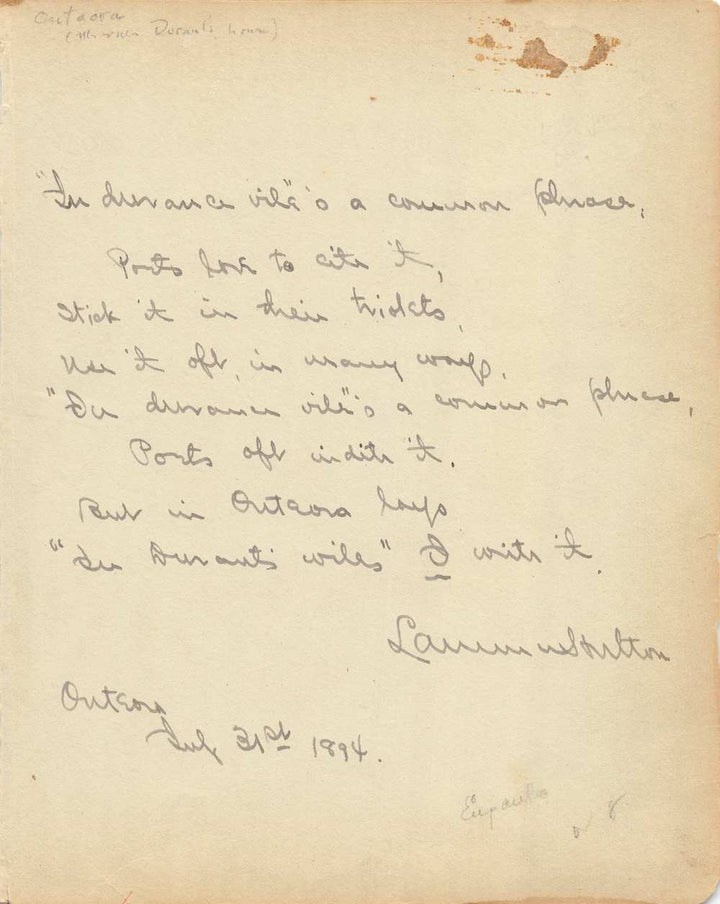 Onteora
( Durant's house)
"In durance vile"'s a common phrase,
Poets love to cite it,
Stick it in their triolets,
Use it oft, in many ways.
"In durance vile"'s a common phrase,
Poets oft indite it.
But in Onteora lays
"In Durant's wiles" I write it.
Laurence Hutton
Onteora
July 31st 1894.